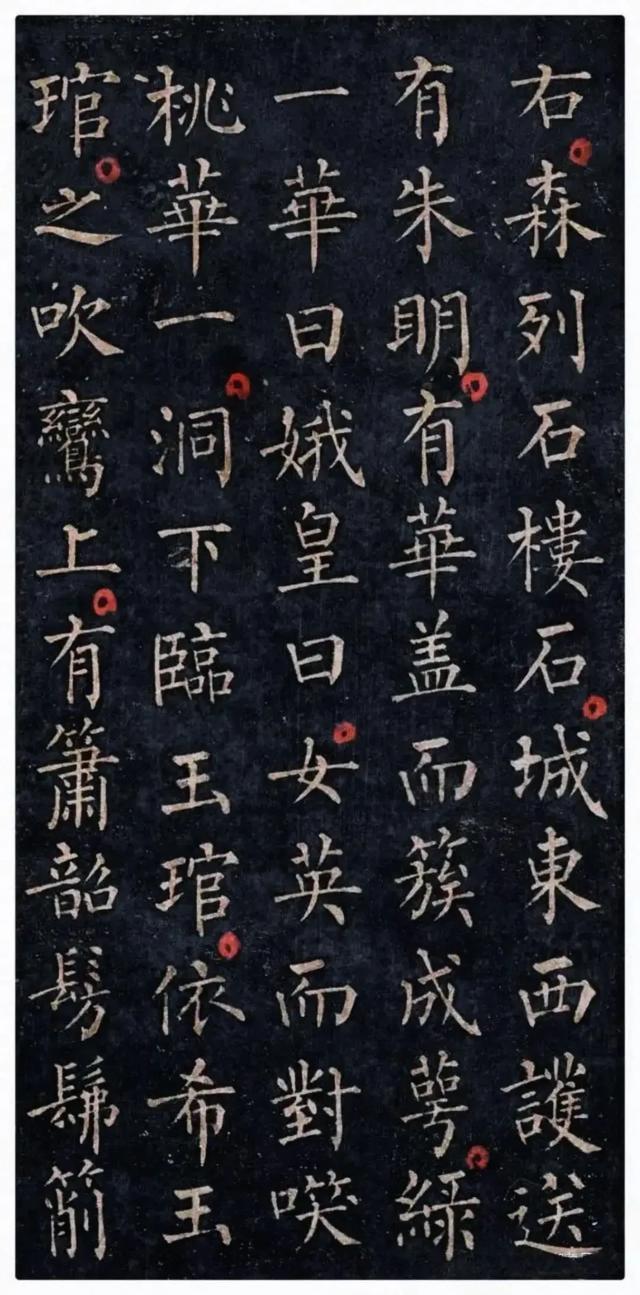 右森列石樓石城東西護送
有朱明有華盖而簇成萼綠
一華曰娥皇曰女英而對㗛
桃華一洞下臨玉琯依希王
琯之吹鸞上有簫韶髣髴箾